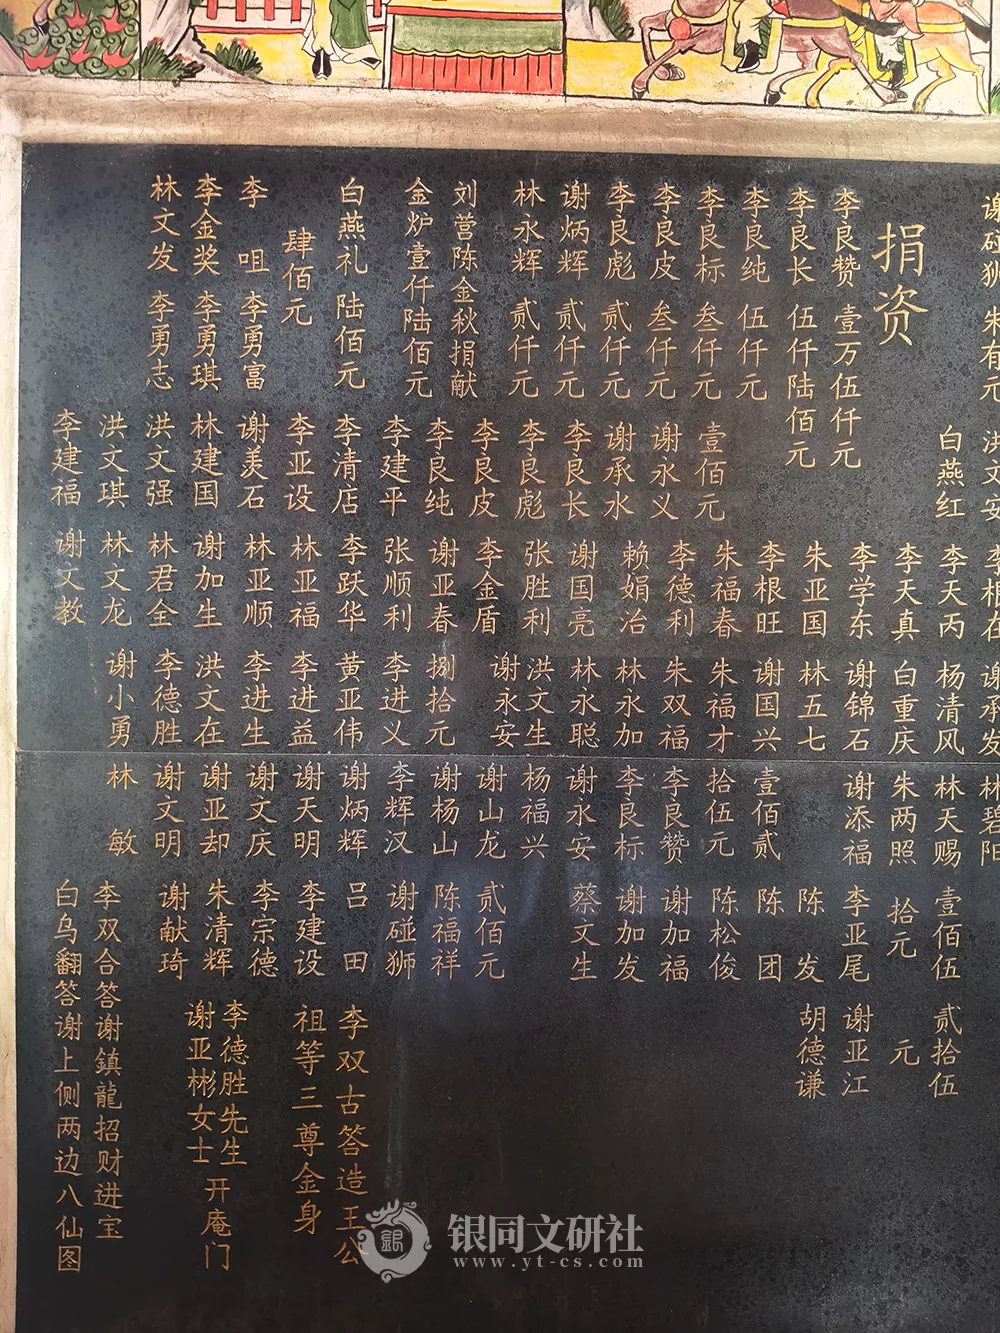 朱有元 洪文安 李根在 谢承发 林碧阳
白燕红 李天丙 杨清风 林天赐 壹佰伍 贰拾伍
捐资 李天真 白重庆 朱两照 拾元 元
李良赞 壹万伍仟元 李学东 谢锦石 谢添福 李亚尾 谢亚江
李良长 伍仟陆佰元 朱亚国 林五七 陈发 胡德谦
李良纯 伍仟元 李根旺 谢国兴 壹佰贰 陈团
李良标 叁仟元 壹佰元 朱福春 朱福才 拾伍元 陈松俊
李良皮 叁仟元 谢永义 李德利 朱双福 李良赞 谢加福
李良彪 贰仟元 谢承水 赖娟治 林永加 李良标 谢加发
谢炳辉 贰仟元 李良长 谢国亮 林永聪 谢永安 蔡文生
林永辉 贰仟元 李良彪 张胜利 洪文生 杨福兴
刘营陈金秋捐献 李良皮 李金盾 谢永安 谢山龙 贰佰元
金炉壹仟陆佰元 李良纯 谢亚春 捌拾元 谢杨山 陈福祥
李建平 张顺利 李进义 李辉汉 谢碰狮
白燕礼 陆佰元 李清店 李跃华 黄亚伟 谢炳辉 吕田 李双古答造王公
肆佰元 李亚设 林亚福 李进益 谢天明 李建设 祖等三尊金身
李咀 李勇富 谢羡石 林亚顺 李进生 谢文庆 李宗德
李金奖 李勇琪 林建国 谢加生 洪文在 谢亚却 朱清辉 李德胜先生 谢亚彬女士 开庵门
林文发 李勇志 洪文强 林君全 李德胜 谢文明 谢献琦
洪文琪 林文龙 谢小勇 林敏 李双合答谢鎮龍招财进宝
李建福 谢文教 白鸟翻答谢上侧两边八仙图
银同文研社
www.yt-cs.com